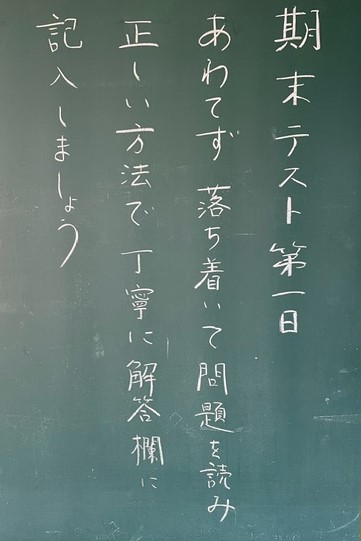 期末テスト第一日
あわてず落ち着いて問題を読み
正しい方法で丁寧に解答欄に
記入しましょう